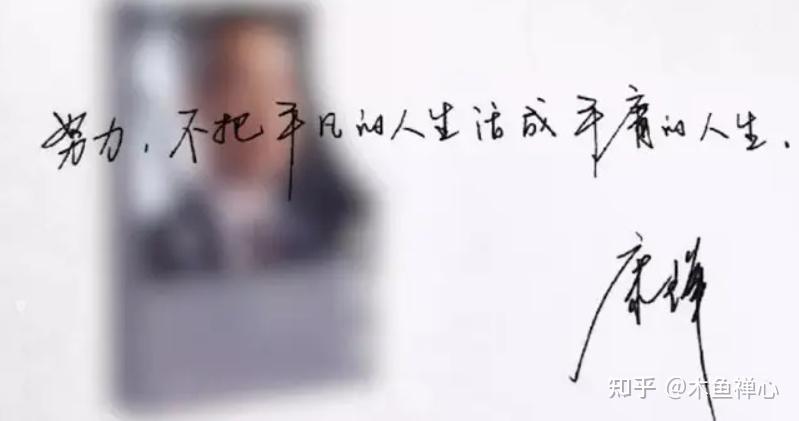 努力，不把平凡的人生活成平庸的人生．
康辉
知乎 @木鱼禅心